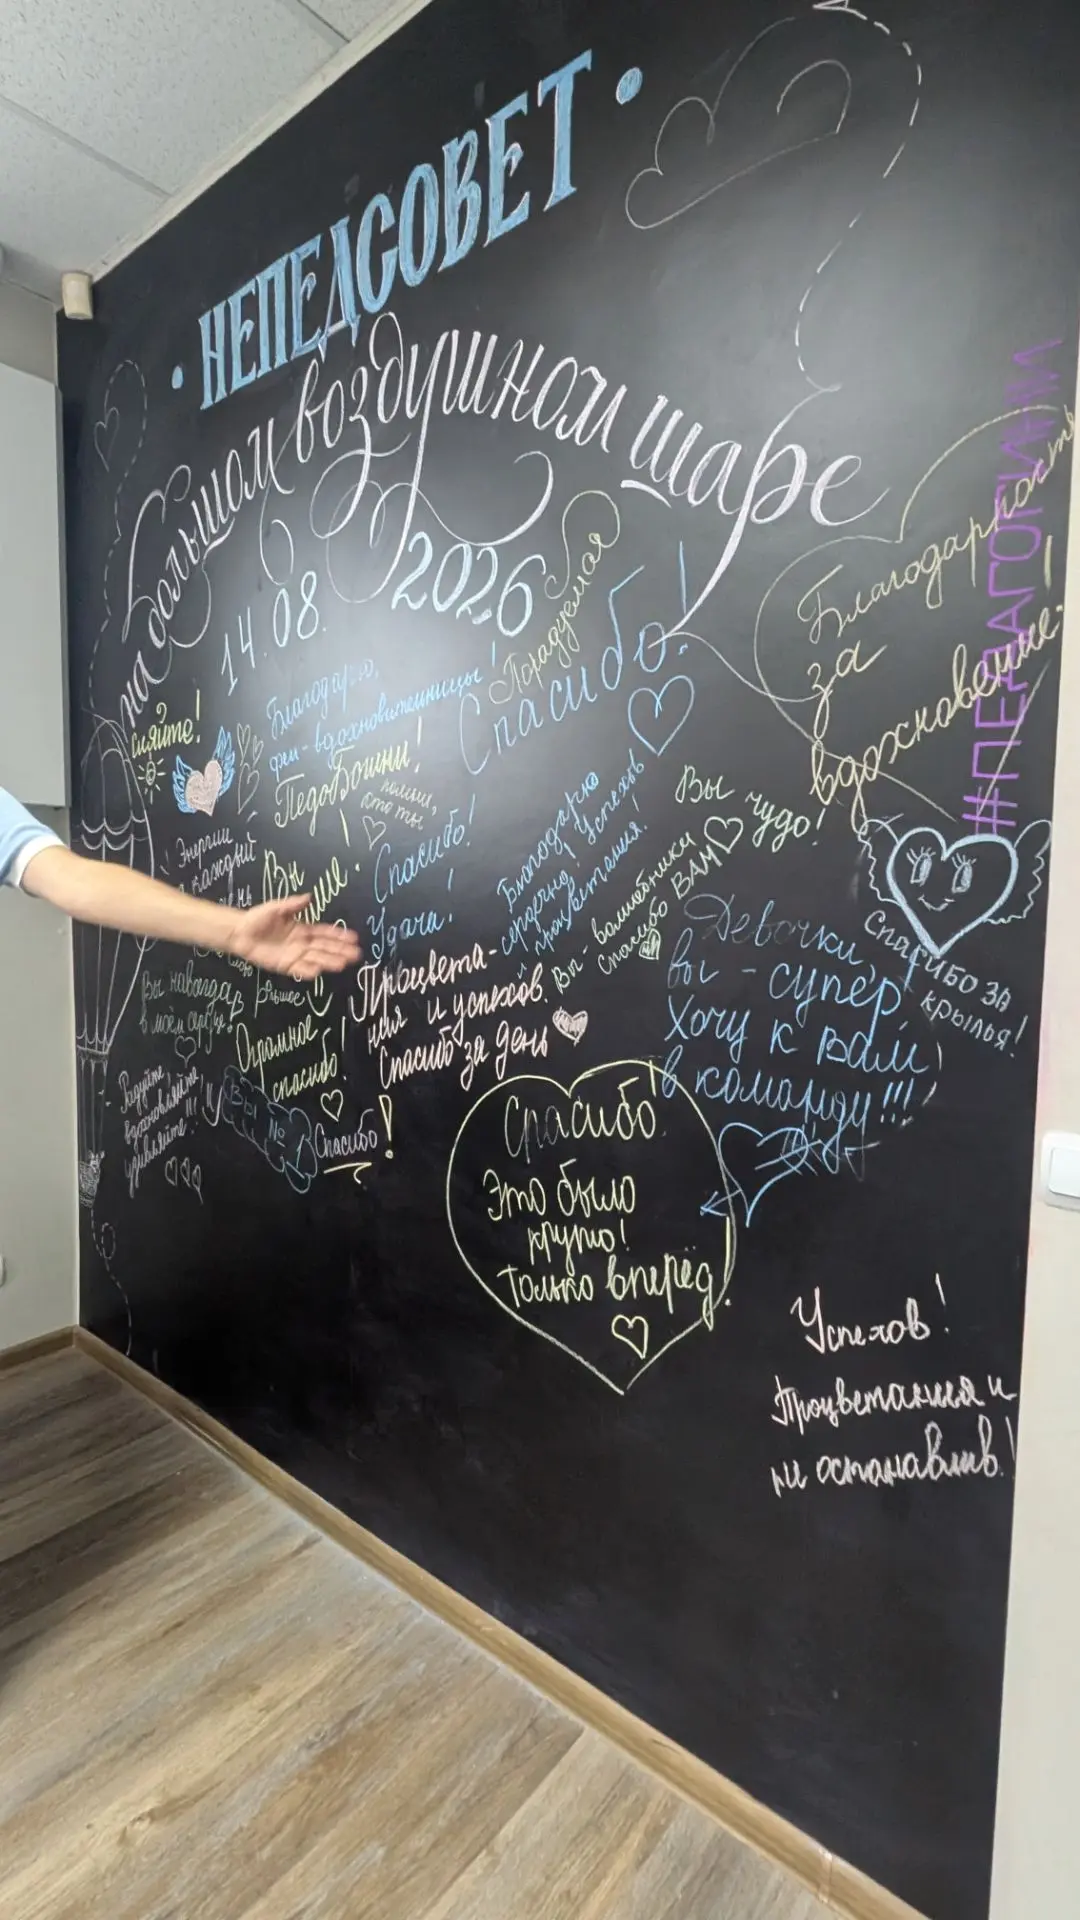 • НЕПЕДСОВЕТ •
на большом воздушном шаре
14.08.
2026
сияйте!
Благодарю,
феи-вдохновительницы!
ПедоБошни!
помни,
кто ты
Спасибо!
Благодарность
за
вдохновение!
#ПЕДАГОГИНИ
Энергии
каждый
Вы
Спасибо!
Удачи!
Благодарю
сердечно! Успехов
и процветания!
Вы - волшебники
Спасибо ВАМ
Вы чудо!
Девочки,
вы - супер!
Хочу к вам
в команду!!!
Спасибо за
крылья!
Процвета-
ния и успехов.
Спасибо за день
Вы навсегда
в моем сердце!
Огромное
спасибо!
Радуйте,
вдохновляйте,
удивляйте!!!
Вы №1
Спасибо!
Спасибо!
Это было
круто!
Только вперёд!
Успехов!
Процветания и